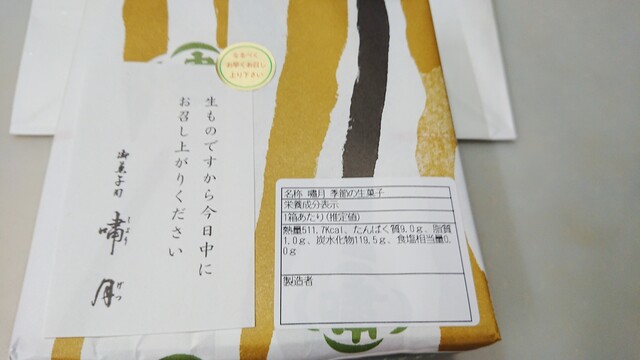 なるべく
お早くお召し
上り下さい
生ものですから今日中に
お召し上がりください
御菓子司
嘯月
しょうげつ
名称 嘯月 季節の生菓子
栄養成分表示
1箱あたり(推定値)
熱量511.7Kcal、たんぱく質9.0g、脂質
1.0g、炭水化物119.5g、食塩相当量0.
0g
製造者